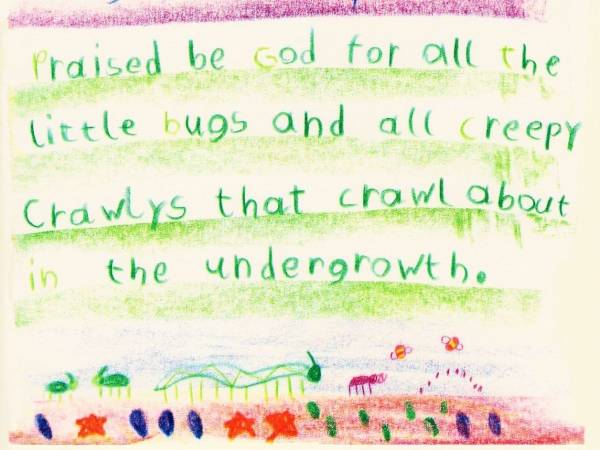 Praised be God for all the
little bugs and all creepy
Crawlys that crawl about
in the undergrowth.